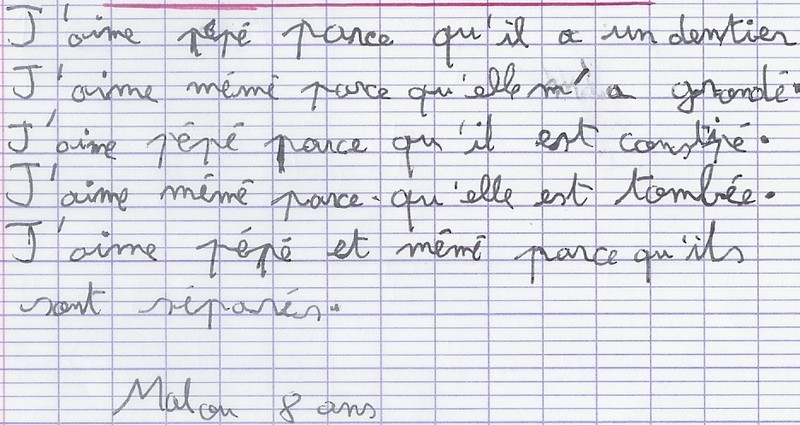 J'aime pépé parce qu'il a un dentier
J'aime mémé parce qu'elle m'a grondé.
J'aime pépé parce qu'il est constipé.
J'aime mémé parce qu'elle est tombée.
J'aime pépé et mémé parce qu'ils
sont séparés.
Malou 8 ans